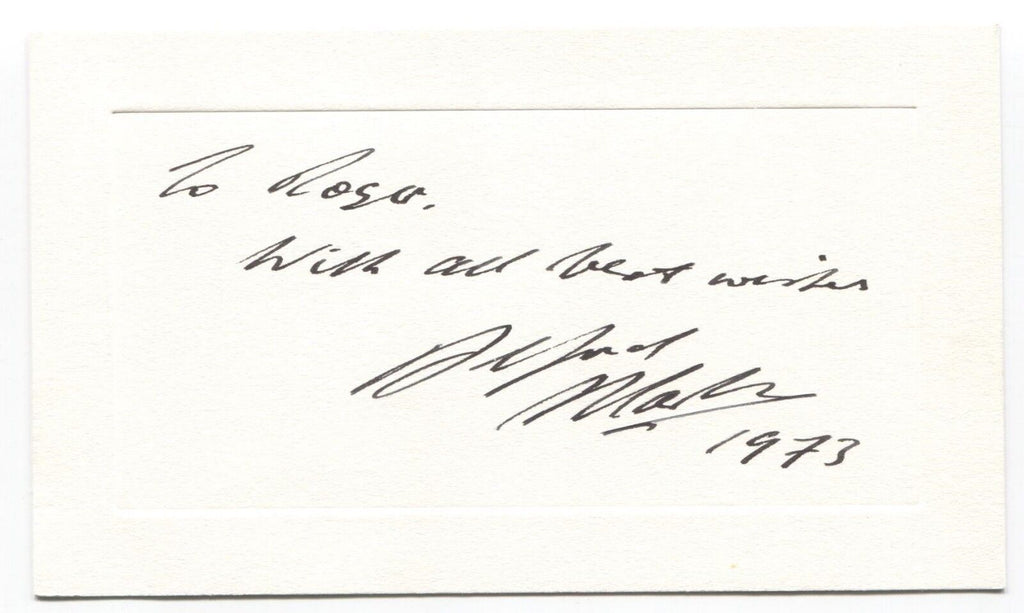 To Roger.
With all best wishes
Alfred
Marks
1973